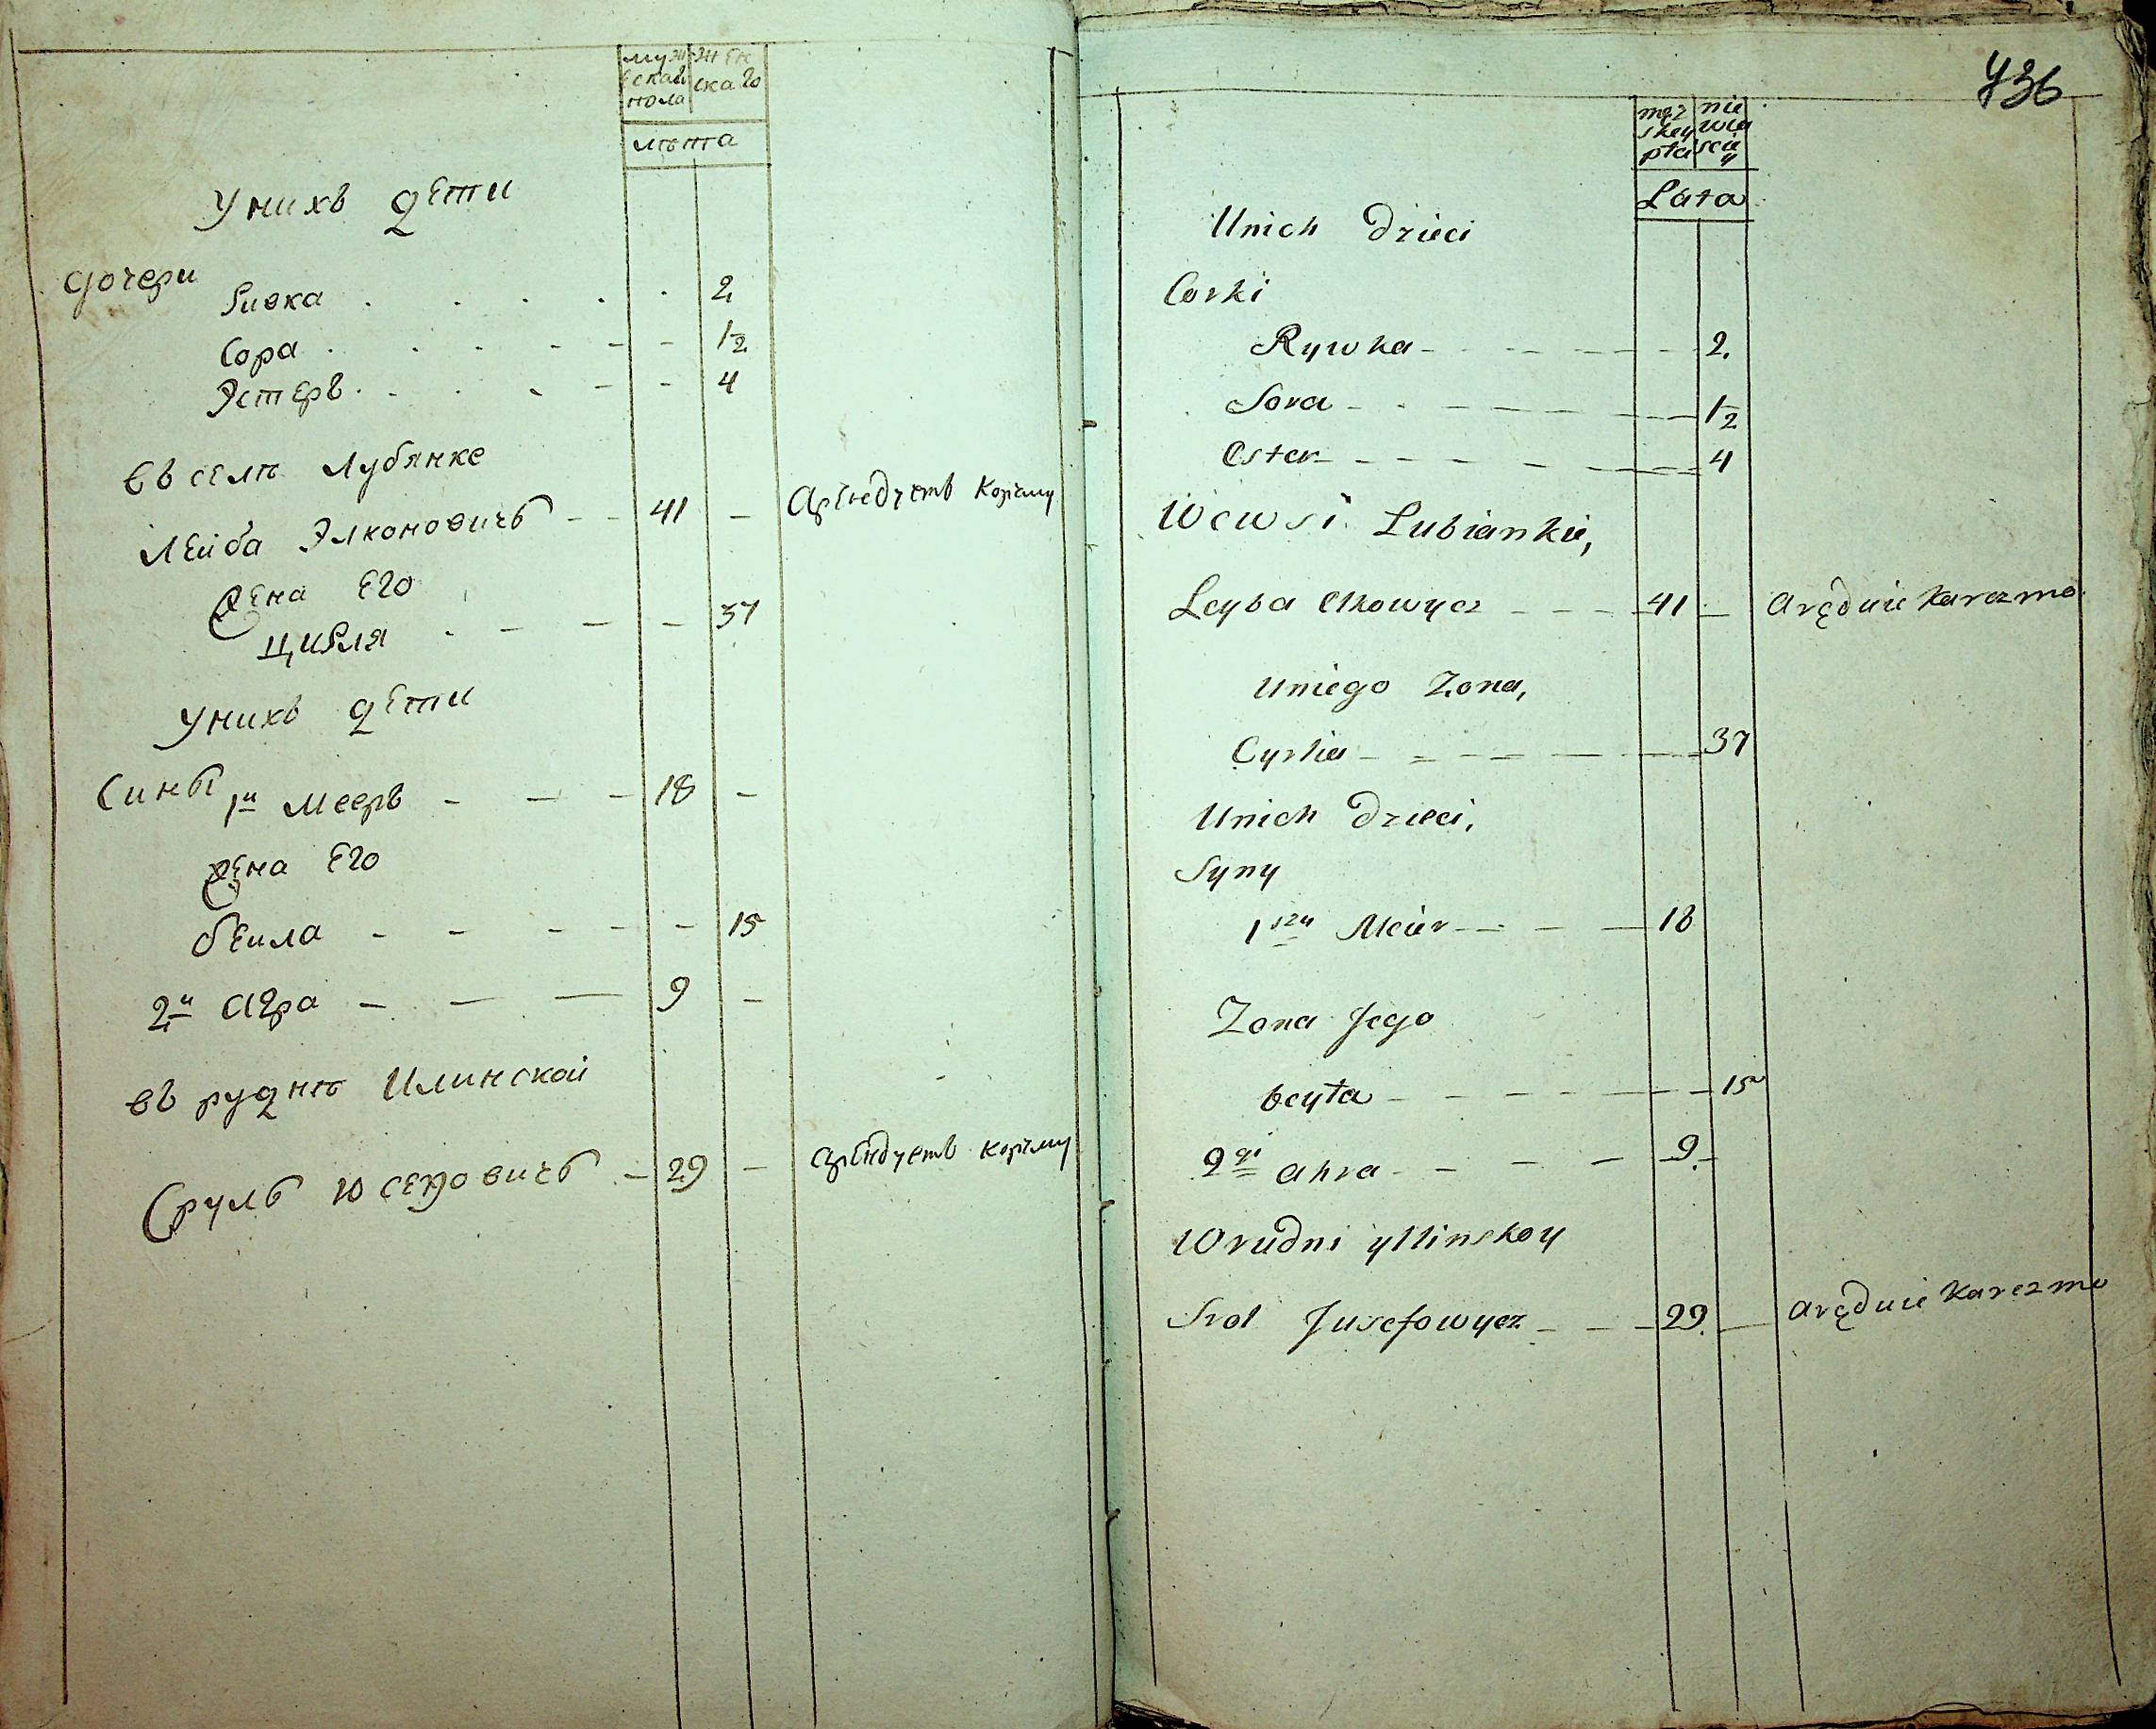 мужескаго пола
женскаго
лѣта
У нихъ дети
дочери
Ривка 2
Сора 1/2
Эстеръ 4
Въ селѣ Лубянке
Лейба Элконовичъ 41 - Арендуетъ Корчму
Жена Его
Цирля 37
У нихъ дети
Сины
1й Мееръ 18 -
Жена Его
Беила 15
2й Агра 9 -
въ руднѣ Илинской
Сруль Юсеповичъ 29 - Арендуетъ Корчму
736
męzskey płci
niewiescey
Lata
Unich Dzieci
Corki
Rywka 2.
Sora 1/2
Ester 4
We wsi Lubiankie,
Leyba Elkowycz 41 Aręduie Karczmo
Uniego Zona,
Cyrlia 37
Unich Dzieci,
Syny
1szy Meier 18
Zona Jego
beyła 15
2gi Ahra 9.
W rudni yllinskoy
Srol Jusefowycz 29. Aręduie Karczmo